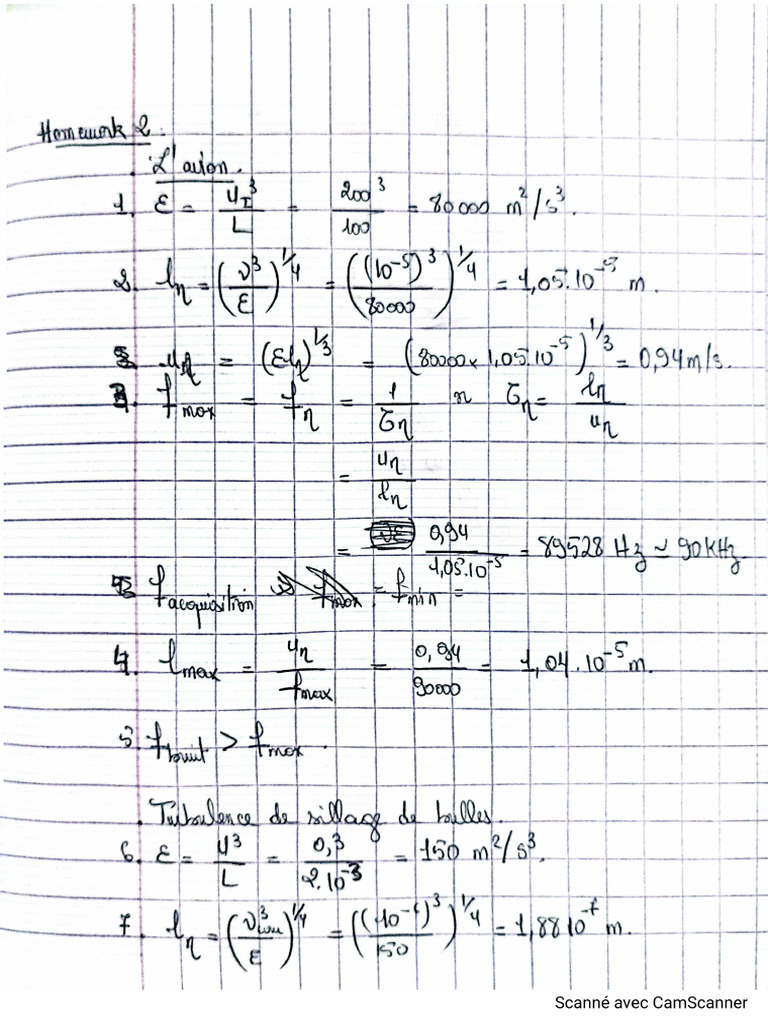 Homework 2:
L'avion.
1. ε = u_I³/L = 200³/100 = 80000 m²/s³.
2. l_η = (ν³/ε)^1/4 = ((10⁻⁵)³/80000)^1/4 = 1,05.10⁻⁵ m.
u_η = (εl_η)^1/3 = (80000x1,05.10⁻⁵)^1/3 = 0,94m/s.
3. f_max = f_η = 1/τ_η τ_η = l_η/u_η
= u_η/l_η
= 0,94/1,05.10⁻⁵ = 89528 Hz ≃ 90KHz.
f_acquisition = f_min =
4 l_max = u_η/f_max = 0,94/90000 = 1,04.10⁻⁵ m.
5 f_bruit > f_max.
Turbulence de sillage de bulles.
6. ε = u³/L = 0,3/2.10⁻³ = 150 m²/s³.
7. l_η = (ν³/ε)^1/4 = ((10⁻⁶)³/150)^1/4 = 1,88 10⁻⁶ m.
Scanné avec CamScanner